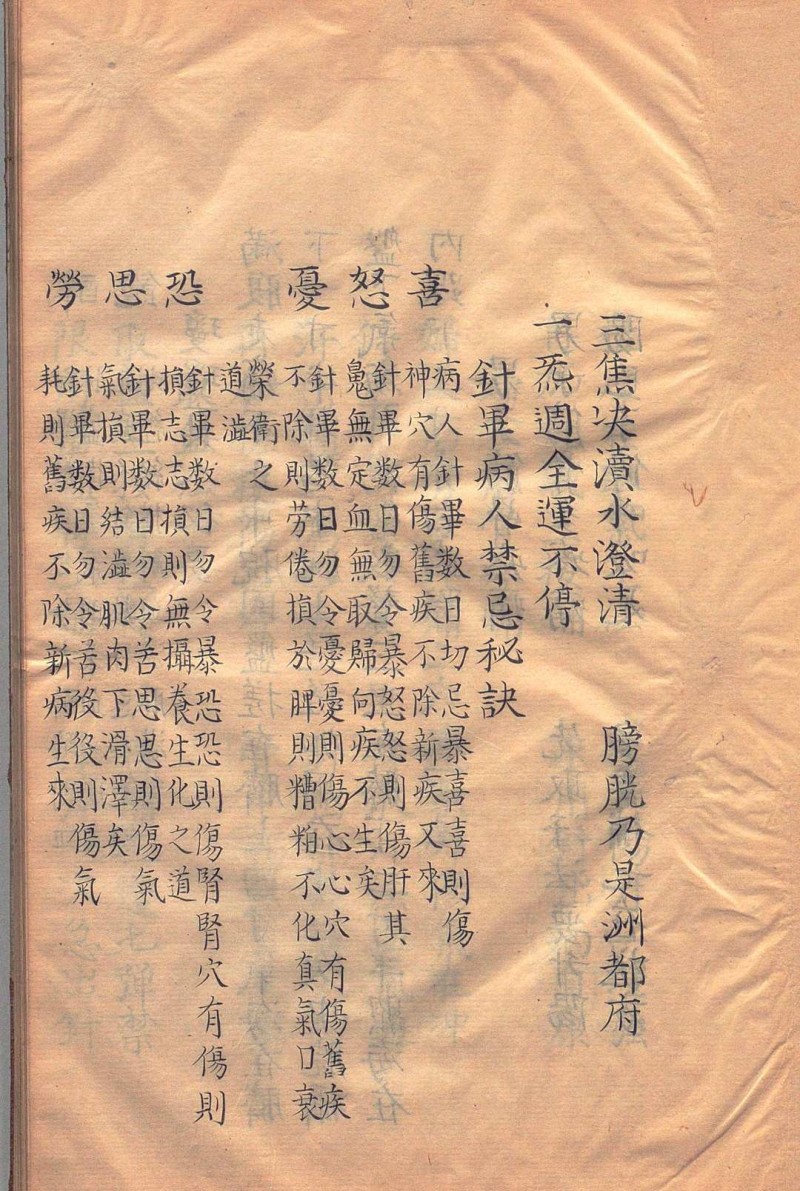 三焦决瀆水澄清　膀胱乃是洲都府
一炁週全運不停
針畢病人禁忌秘訣
喜
病人針畢数日切忌暴喜喜則傷
神穴有傷舊疾不除新疾又來
怒
針畢数日勿令暴怒怒則傷肝其
無定血無取歸向疾不生矣
憂
針畢数日勿令憂憂則傷心心穴有傷舊疾
不除則劳倦損於脾則糟粕不化真氣日衰
榮衛之
道澁
恐
針畢数日勿令暴恐恐則傷腎腎穴有傷則
損志志損則無攝養生化之道
思
針畢数日勿令苦思思則傷氣
氣損則結澁肌肉下滑澤矣
勞
針畢数日勿令苦役役則傷氣
耗則舊疾不除新病生來